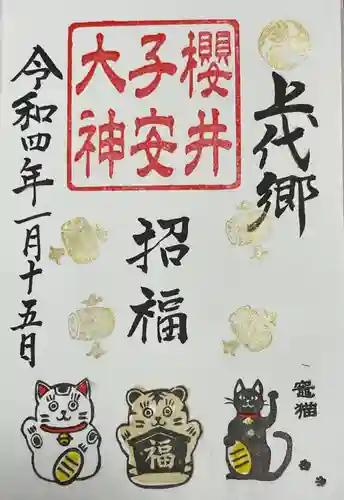 上代郷
櫻井
子安
大神
招福
令和四年一月十五日
福
竈猫